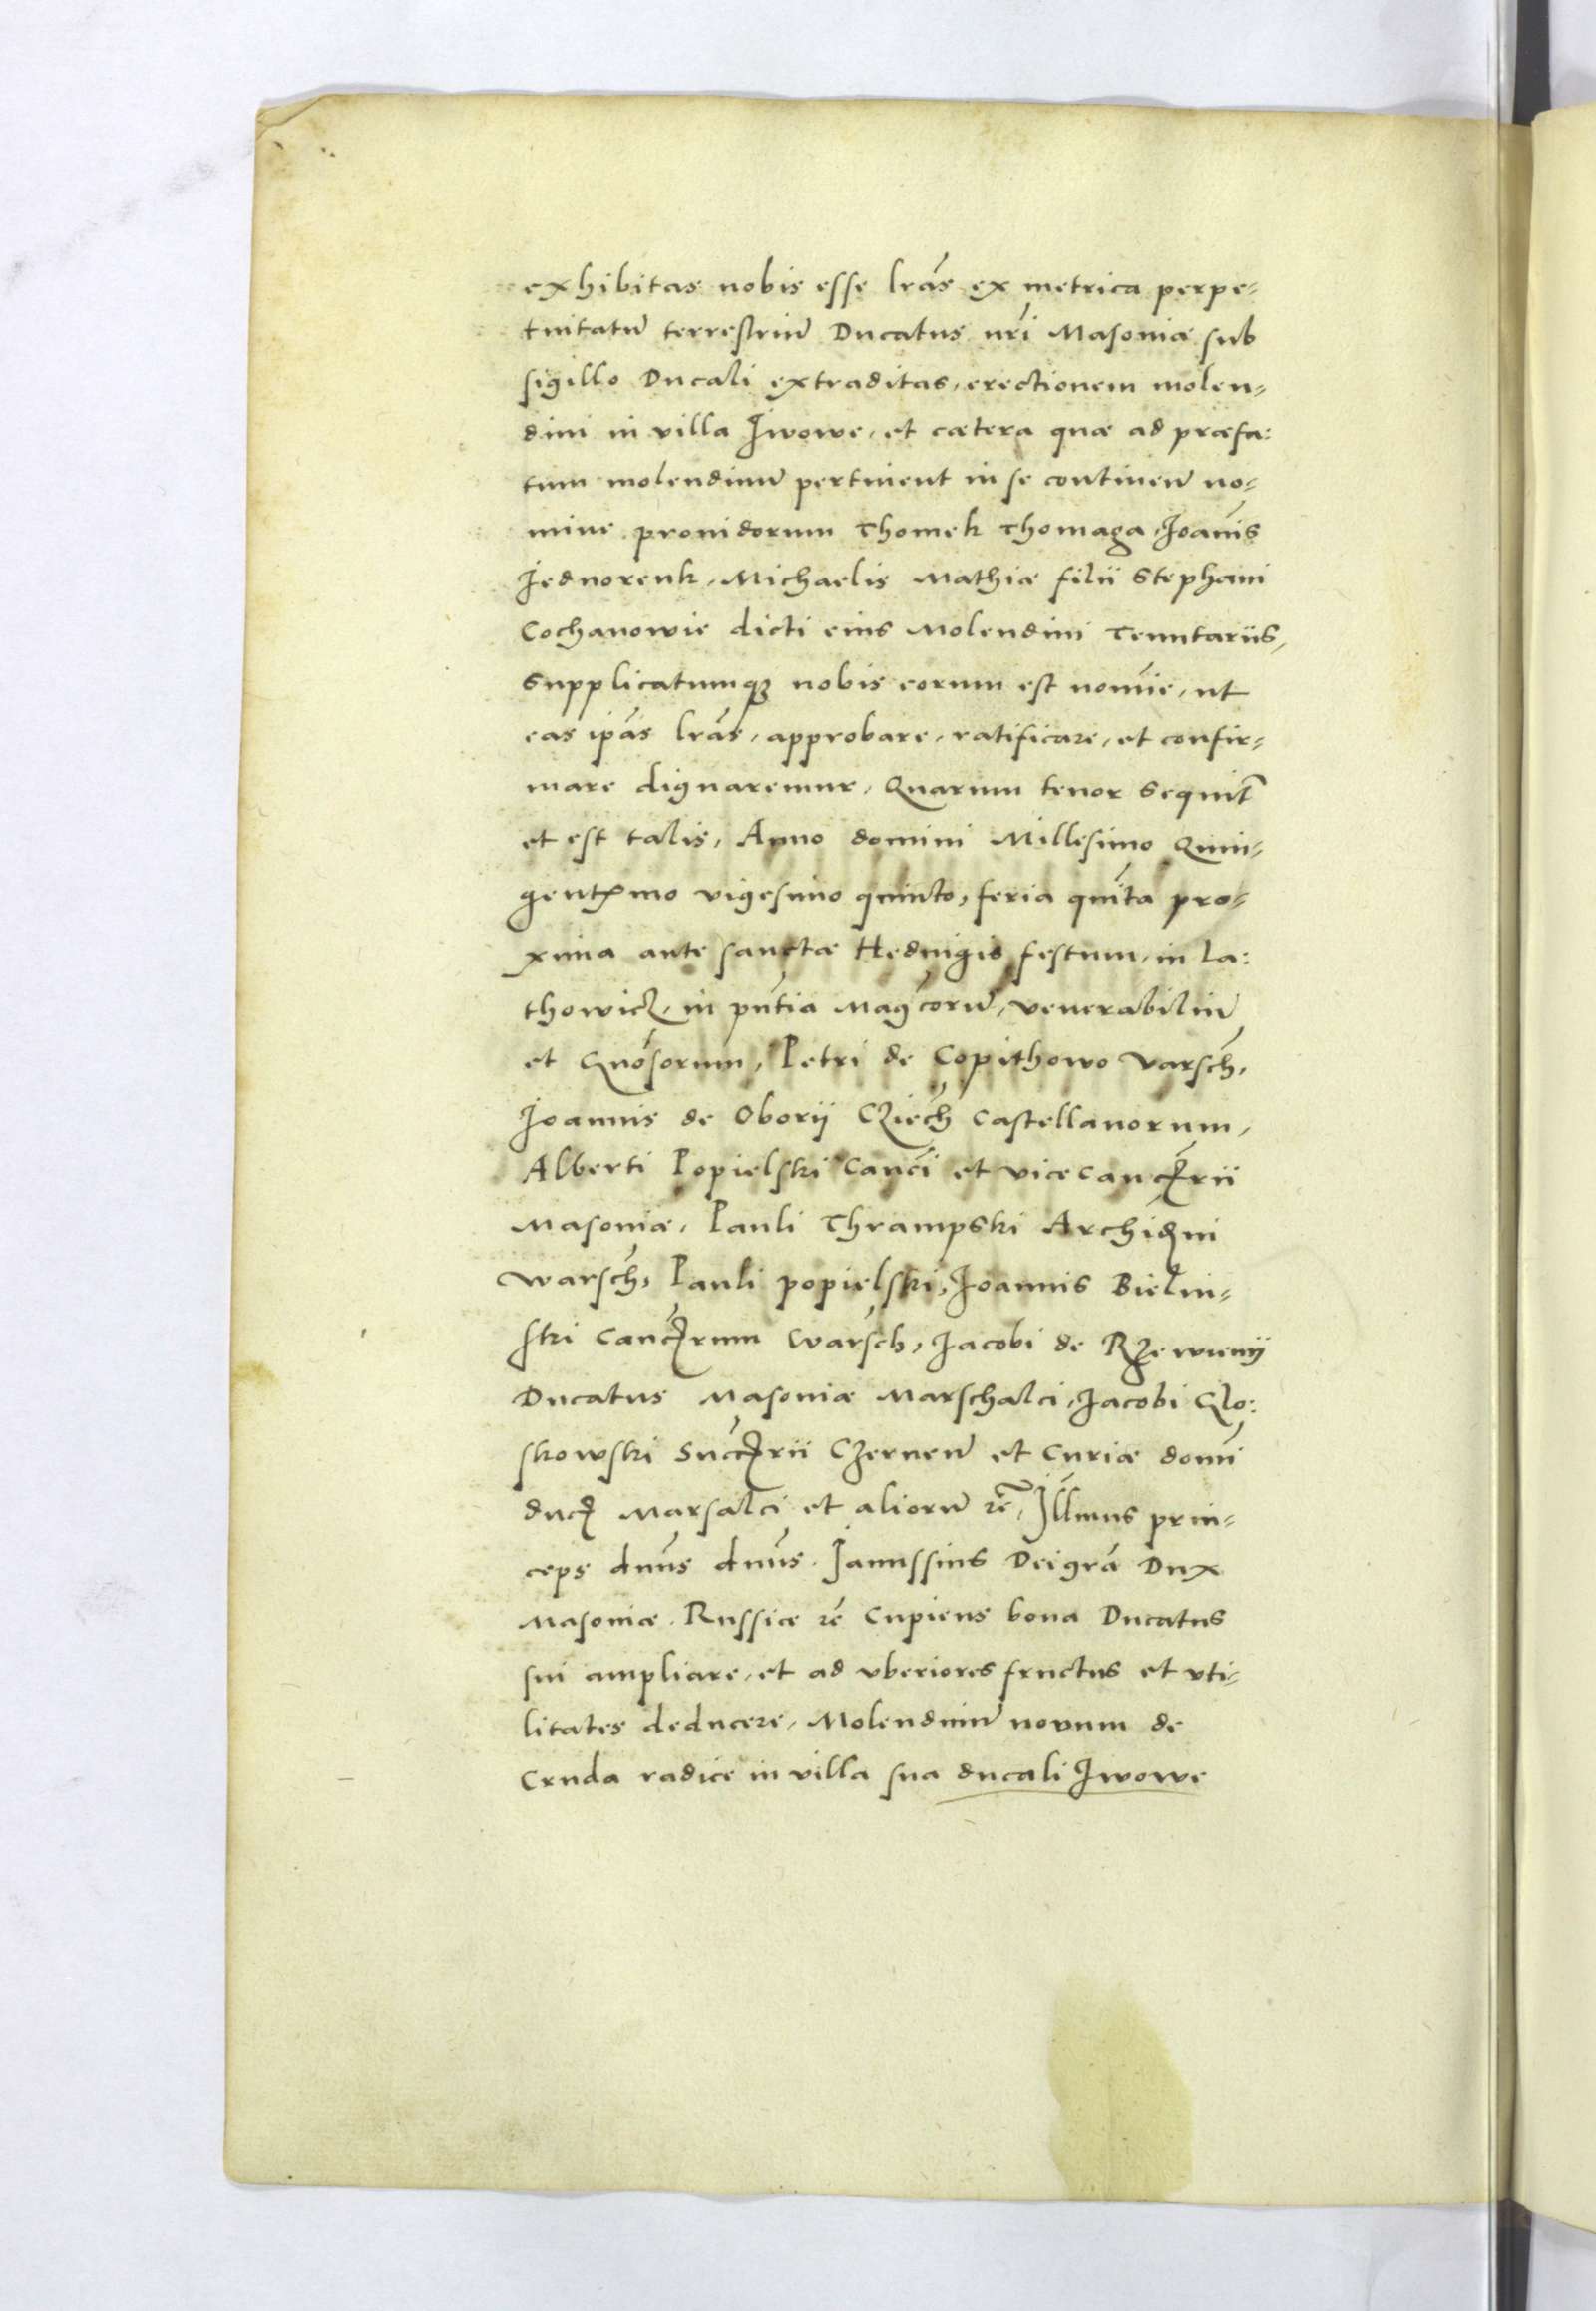 exhibitas nobis esse lrãs ex metrica perpe-
tuitatũ terrestriũ Ducatus nrĩ Masoviæ sub
sigillo Ducali extraditas, erectionem molen-
dini in villa Iwowe, et cætera quæ ad præfa:
tum molendinũ pertinent in se contineñ no-
mine providorum Thomek Thomaga, Ioañis
Iednorenk, Michaelis Mathiæ filii Stephani
Cochanowie dicti eius Molendini Tenutariis,
Supplicatumqꝫ nobis eorum est nomĩe, ut
eas ipãs lrãs, approbare, ratificare, et confir-
mare dignaremur, Quarum tenor sequit̃
et est talis, Anno domini Millesimo Quin-
gentꝭmo vigesimo quinto, feria quĩta pro-
xima ante sanctæ Hedvigis festum, in La:
thowicz, in pñtia Mag̃corũ, venerabiliũ
et Gnõsorum, Petri de Copithowo Varsch̃,
Ioannis de Oborij Cziech̃ Castellanorum,
Alberti Popielski Cancĩ et vice Canc̃ꝭrii
Masoviæ, Pauli Thrampski Archidꝭni
Warsch̃, Pauli popielski, Ioannis Bielin-
ski Canc̃ꝭrum Warsch̃, Iacobi de Rzewienij
Ducatus Masoviæ Marschalci, Iacobi Glo:
skowski Succ̃ꝭrii Czerneñ et Curiæ domĩ
ducꝭ Marsalci et aliorũ rẽ, Illm̃us prin-
ceps dnũs dnũs Ianussius Dei grã Dux
Masoviæ Russiæ rẽ Cupiens bona Ducatus
sui ampliare, et ad vberiores fructus et vti-
litates deducere, Molendinũ novum de
Cruda radice in villa sua ducali Iwowe